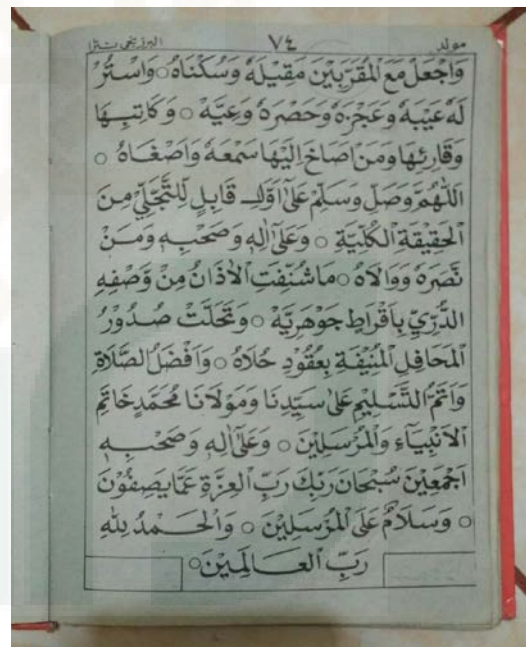 مولد ٧٤ البرزنجى نثرا
وَاجْعَلْ مَعَ الْمُقَرَّبِيْنَ مَقِيْلَهٗ وَسُكْنَاهُ ○ وَاسْتُرْ
لَهٗ عَيْبَهٗ وَعَجْزَهٗ وَحَصْرَهٗ وَعِيَّهْ ○ وَكَاتِبِهَا
وَقَارِئِهَا وَمَنْ اَصَاخَ اِلَيْهَا سَمْعَهٗ وَاَصْغَاهُ ○
اَللّٰهُمَّ وَصَلِّ وَسَلِّمْ عَلٰى اَوَّلِ قَابِلٍ لِلتَّجَلِّيْ مِنَ
الْحَقِيْقَةِ الْكُلِّيَّةِ ○ وَعَلٰى اٰلِهٖ وَصَحْبِهٖ وَمَنْ
نَّصَرَهٗ وَوَالَاهُ ○ مَا شُنِّفَتِ الْاٰذَانُ مِنْ وَّصْفِهِ
الدُّرِّيِّ بِاَقْرَاطٍ جَوْهَرِيَّهْ ○ وَتَحَلَّتْ صُدُوْرُ
الْمَحَافِلِ الْمُنِيْفَةِ بِعُقُوْدِ حُلَاهُ ○ وَاَفْضَلُ الصَّلَاةِ
وَاَتَمُّ التَّسْلِيْمِ عَلٰى سَيِّدِنَا وَمَوْلَانَا مُحَمَّدٍ خَاتَمِ
الْاَنْبِيَآءِ وَالْمُرْسَلِيْنَ ○ وَعَلٰى اٰلِهٖ وَصَحْبِهٖ
اَجْمَعِيْنَ سُبْحَانَ رَبِّكَ رَبِّ الْعِزَّةِ عَمَّا يَصِفُوْنَ
○ وَسَلَامٌ عَلَى الْمُرْسَلِيْنَ ○ وَالْحَمْدُ لِلّٰهِ
رَبِّ الْعَالَمِيْنَ ○